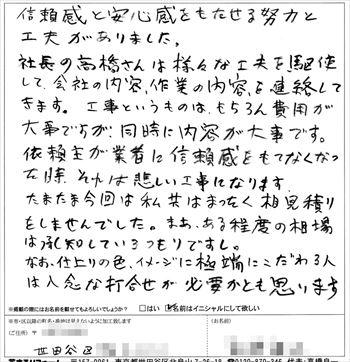 信頼感と安心感をもたせる努力と
工夫がありました。
社長の高橋さんは様々な工夫を駆使
して、会社の内容、作業の内容を連絡して
きます。工事というものは、もちろん費用が
大事ですが、同時に内容が大事です。
依頼主が業者に信頼感をもてなくなっ
た時、それは悲しい工事になります。
たまたま今回は私共はまったく相見積り
をしませんでした。まぁ、ある程度の相場
は承知しているつもりですし。
なお、仕上りの色、イメージに極端にこだわる人
は入念な打合せが必要かとも思います
※掲載の際にはお名前を載せてもよろしいでしょうか?
□はい ☑名前はイニシャルにして欲しい
〈ご住所〉 〒
〈お名前〉
世田谷区